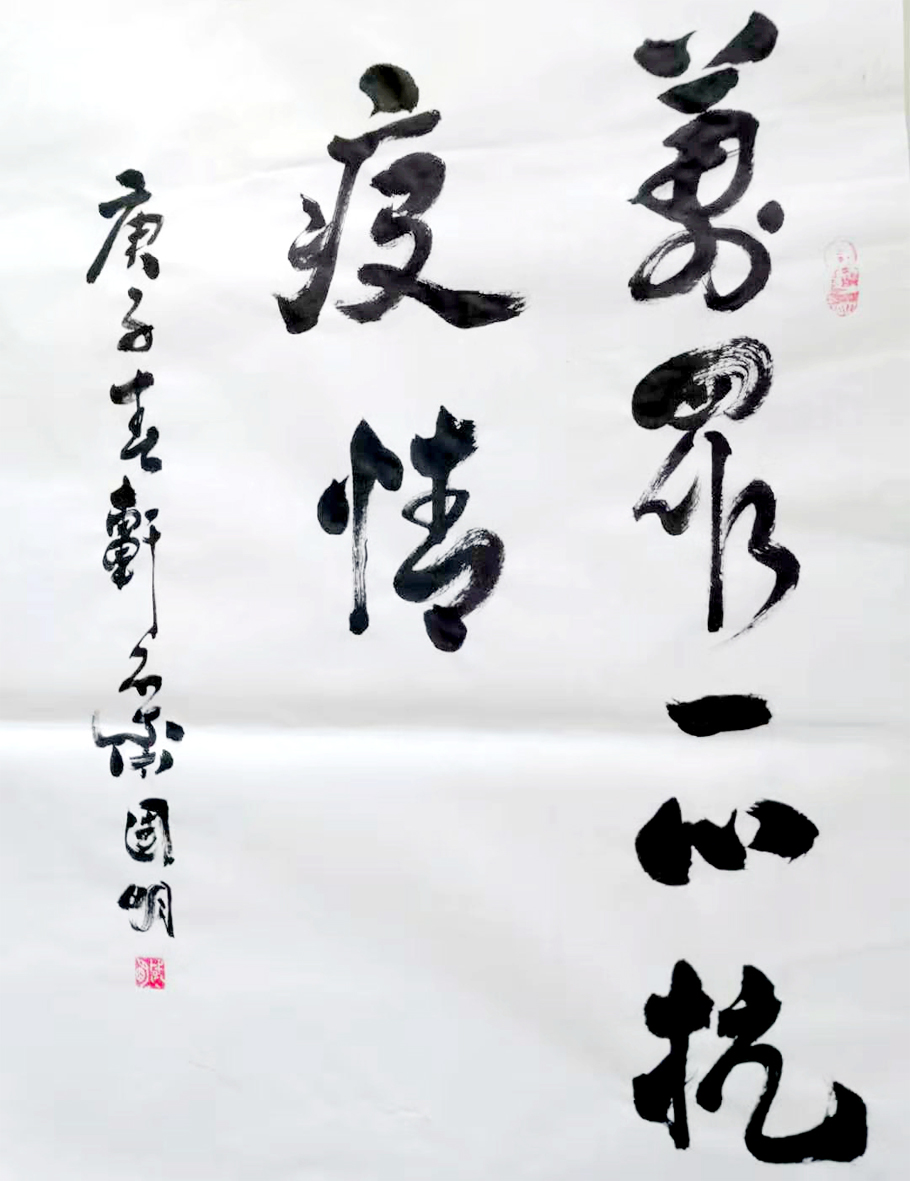 萬眾一心抗
疫情
庚子春軒國明